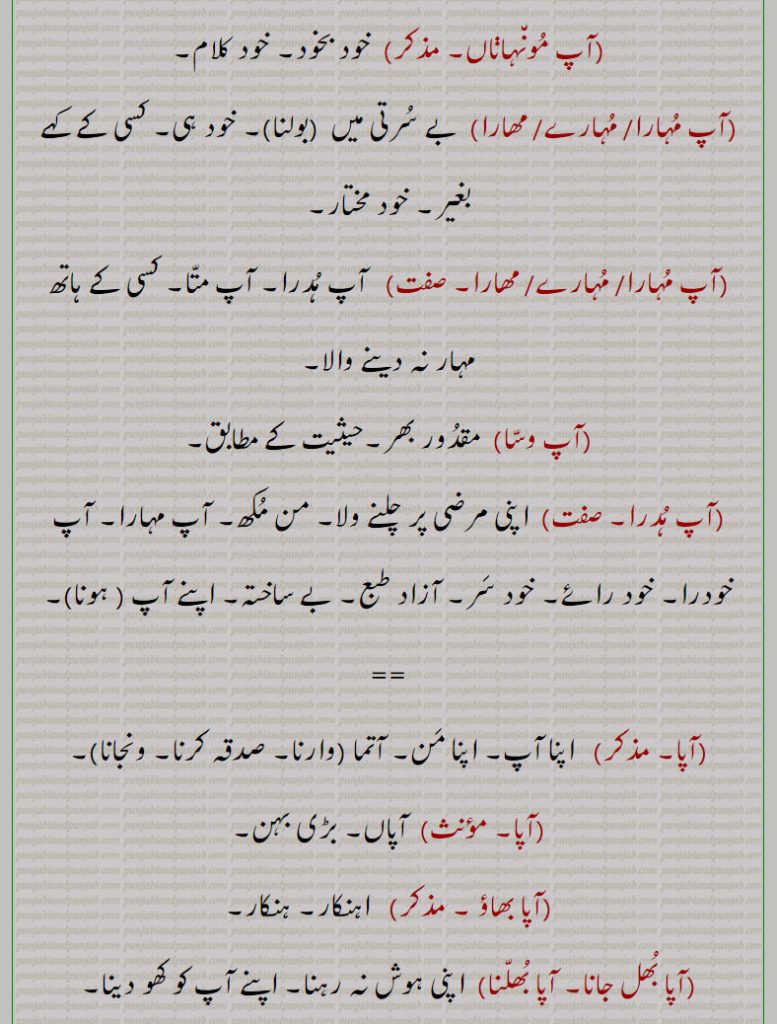 (آپ مُونّہاںاں۔ مذکر) خود بخود۔ خود کلام۔
(آپ مُہارا/ مُہارے/ مھارا) بے سُرتی میں (بولنا)۔ خود ہی۔ کسی کے کہے
بغیر۔ خود مختار۔
(آپ مُہارا/ مُہارے/ مھارا۔ صفت) آپ ہُدرا۔ آپ متّا۔ کسی کے ہاتھ
مہار نہ دینے والا۔
(آپ وسّا) مقدُور بھر۔ حیثیت کے مطابق۔
(آپ ہُدرا۔ صفت) اپنی مرضی پر چلنے ولا۔ من مُکھ۔ آپ مہارا۔ آپ
خودرا۔ خود رائے۔ خود سَر۔ آزاد طبع۔ بے ساختہ۔ اپنے آپ ( ہونا)۔
==
(آپا۔ مذکر) اپنا آپ۔ اپنا مَن۔ آتما (وارنا۔ صدقہ کرنا۔ ونجانا)۔
(آپا۔ مؤنث) آپاں۔ بڑی بہن۔
(آپا بھاؤ ۔ مذکر) اہنکار۔ ہنکار۔
(آپا بُھل جانا۔ آپا بُھلّنا) اپنی ہوش نہ رہنا۔ اپنے آپ کو کھو دینا۔